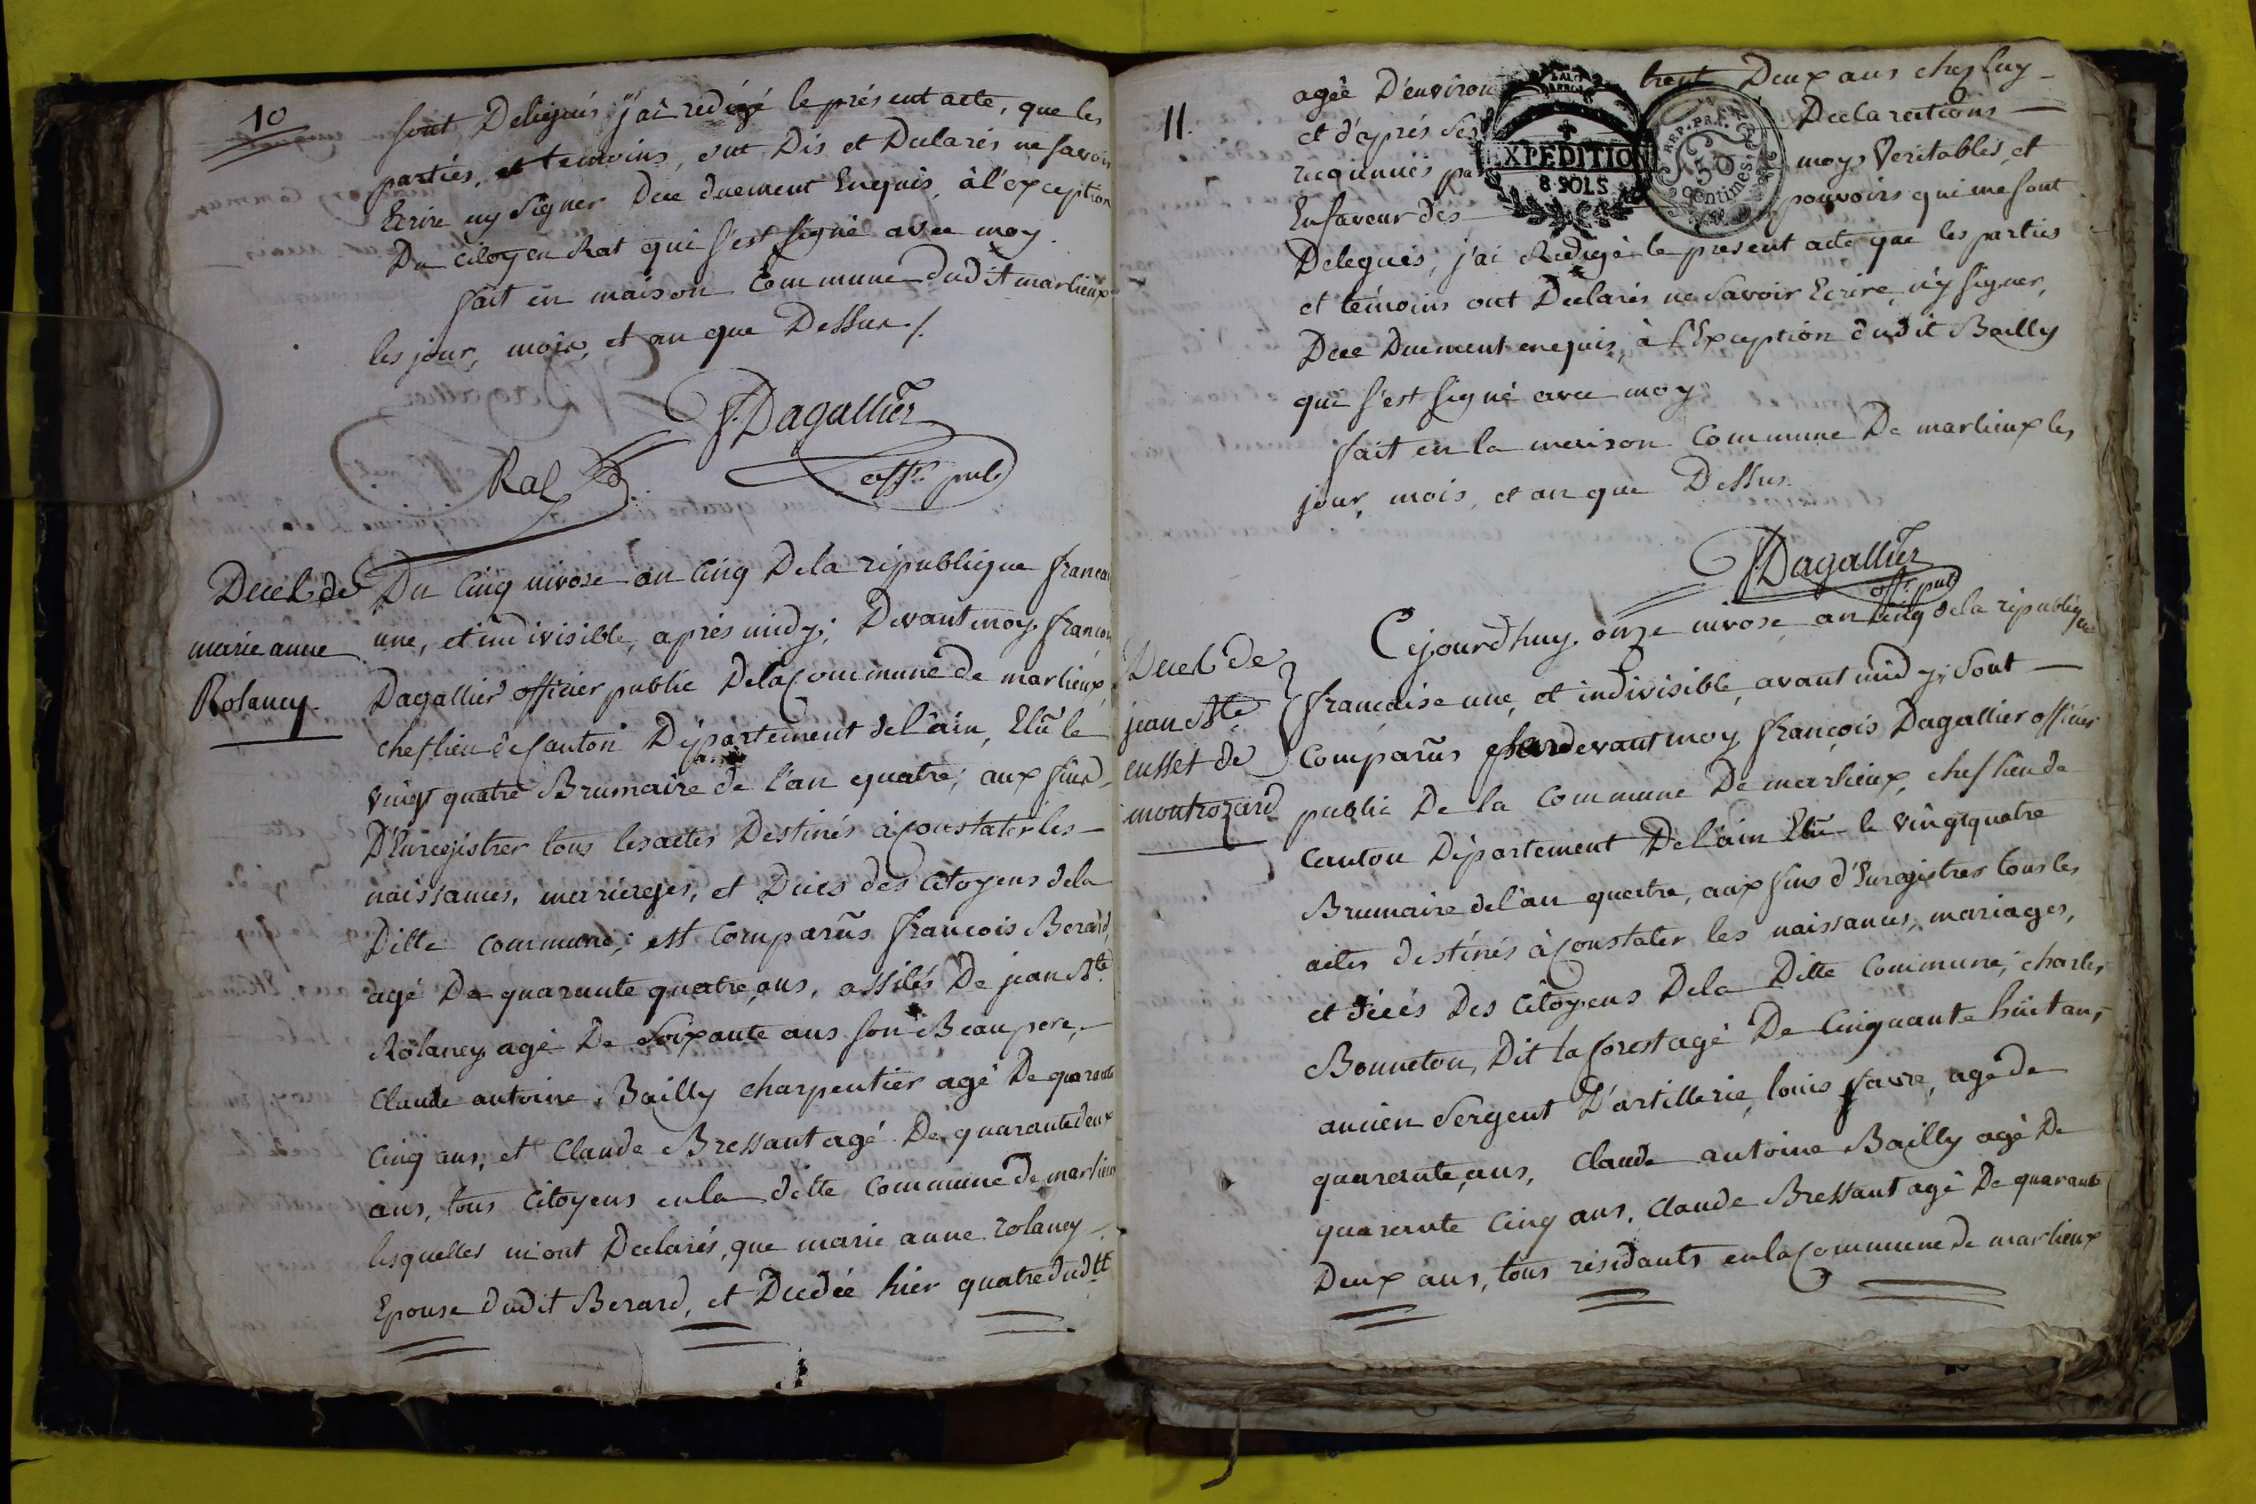 10
sont Delegués j'ai redigé le présent acte, que les
parties, et temoins, ont Dis et Declarés ne savoir
Ecrire ny Signer Dee duement Enquis, à l'exception
Du citoyen Rat qui s'est signé avec moy.
fait en maison Commune dudit marlieux
les jour, mois, et an que Dessus ./.
f. Dagallier
Rat
offr. pub
Decet de
marie anne
Rolancy.
Du Cinq nivose an Cinq Dela république francai
une, et indivisible, aprés midy; Devant moy francoi
Dagallier officier public Dela Commune de marlieux
chef lieu de Canton Département de l'ain, Elû le
vingt quatre Brumaire de l'an quatre; aux fins
D'Enregistrer tous les actes Destinés à Constater les
naissances, mariages, et Dices des Citoyens dela
Ditte commune; est Comparûs francois Berard,
agé De quarante quatre ans, assités De jean Bte.
Rolancy agé De Soixante ans son Beaupere,
Claude antoine Bailly charpentier agé De quarante
Cinq ans, et Claude Bressant agé De quarante deux
ans, tous Citoyens en la ditte Commune de marlieux
lesquelles m'ont Declarés, que marie anne rolancy
Epouse dudit Berard, et Decedée hier quatre dudtt
11.
agée D'environ trent Deux ans chez luy
et d'aprés ses Declarations
reconnues pa moy Veritables, et
En faveur des pouvoirs qui me sont
EXPEDITION
8 SOLS
REP. FRA.
50
centimes
Delegués, j'ai Redigé le present acte que les parties
et témoins ont Declarés ne Savoir Ecrire, n'y signer,
Dee Duement enquis, à l'Exception dudit Bailly
qui s'est signé avec moy
fait en la maison Commune De marlieux les
jour, mois, et an que Dessus.
f. Dagallier
offr. pub
Decet de
jean Bte
cusset de
montrozard
Cejourdhuy onze nivose an Cinq dela république
francaise une, et indivisible, avant midy; Sont
Comparûs pardevant moy françois Dagallier officier
public De la Commune De marlieux, chef lieu de
Canton Département De l'ain Elû le vingtquatre
Brumaire de l'an quatre, aux fins d'Enregistrer tous les
actes destinés à Constater les naissances, mariages,
et décés Des Citoyens Dela Ditte Commune; charles
Bonneton, Dit la forest agé De Cinquante huit ans,
ancien Sergent D'artillerie, louis favre, agé de
quarante ans, Claude antoine Bailly agé De
quarente Cinq ans, Claude Bressant agé De quarante
Deux ans, tous résidants en la Commune de marlieux